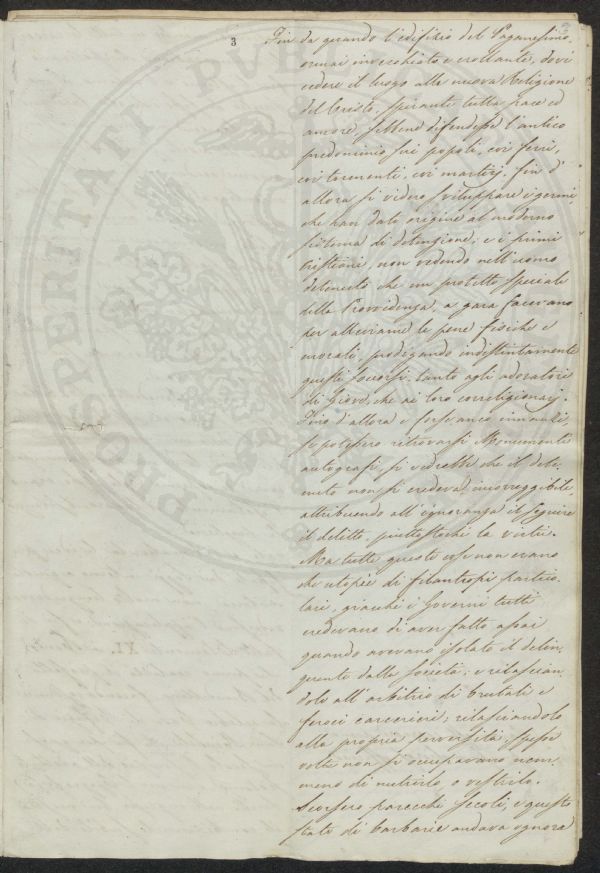 3
Fin da quando l'edifizio del Paganesimo,
ormai invecchiato e crollante, dové
cedere il luogo alla nuova Religione
del Cristo, spirante tutta pace ed
amore, sebbene difendesse l'antico
predominio sui popoli, coi ferri,
coi tormenti, coi martirj, fin d'
allora si videro sviluppare i germi
che han dato origine al moderno
sistema di detenzione; e i primi
cristiani, non vedendo nell'uomo
detenuto che un protetto speciale
della Provvidenza, a gara facevano
per alleviarne le pene fisiche e
morali, prodigando indistintamente
questi soccorsi, tanto agli adoratori
di Giove, che ai loro correligionarj.
Fino d'allora e forse anco innanzi,
se potessero ritrovarsi Monumenti
autografi, si vedrebbe che il dete-
nuto non si credeva incorreggibile,
attribuendo all'ignoranza il seguire
il delitto, piuttostochè la virtù.
Ma tutte queste cose non erano
che utopie di filantropi partico-
lari, giacchè i Governi tutti
credevano di aver fatto assai
quando avevano isolato il delin-
quente dalla società; e rilascian-
dolo all'arbitrio di brutali e
feroci carcerieri; rilasciandolo
alla propria perversità, spesse
volte non si occupavano nem-
meno di nutrirlo, o vestirlo.
Scorsero parecchi secoli, e questo
stato di barbarie andava ognora
PROSPERITATI PUBLICAE
XI.